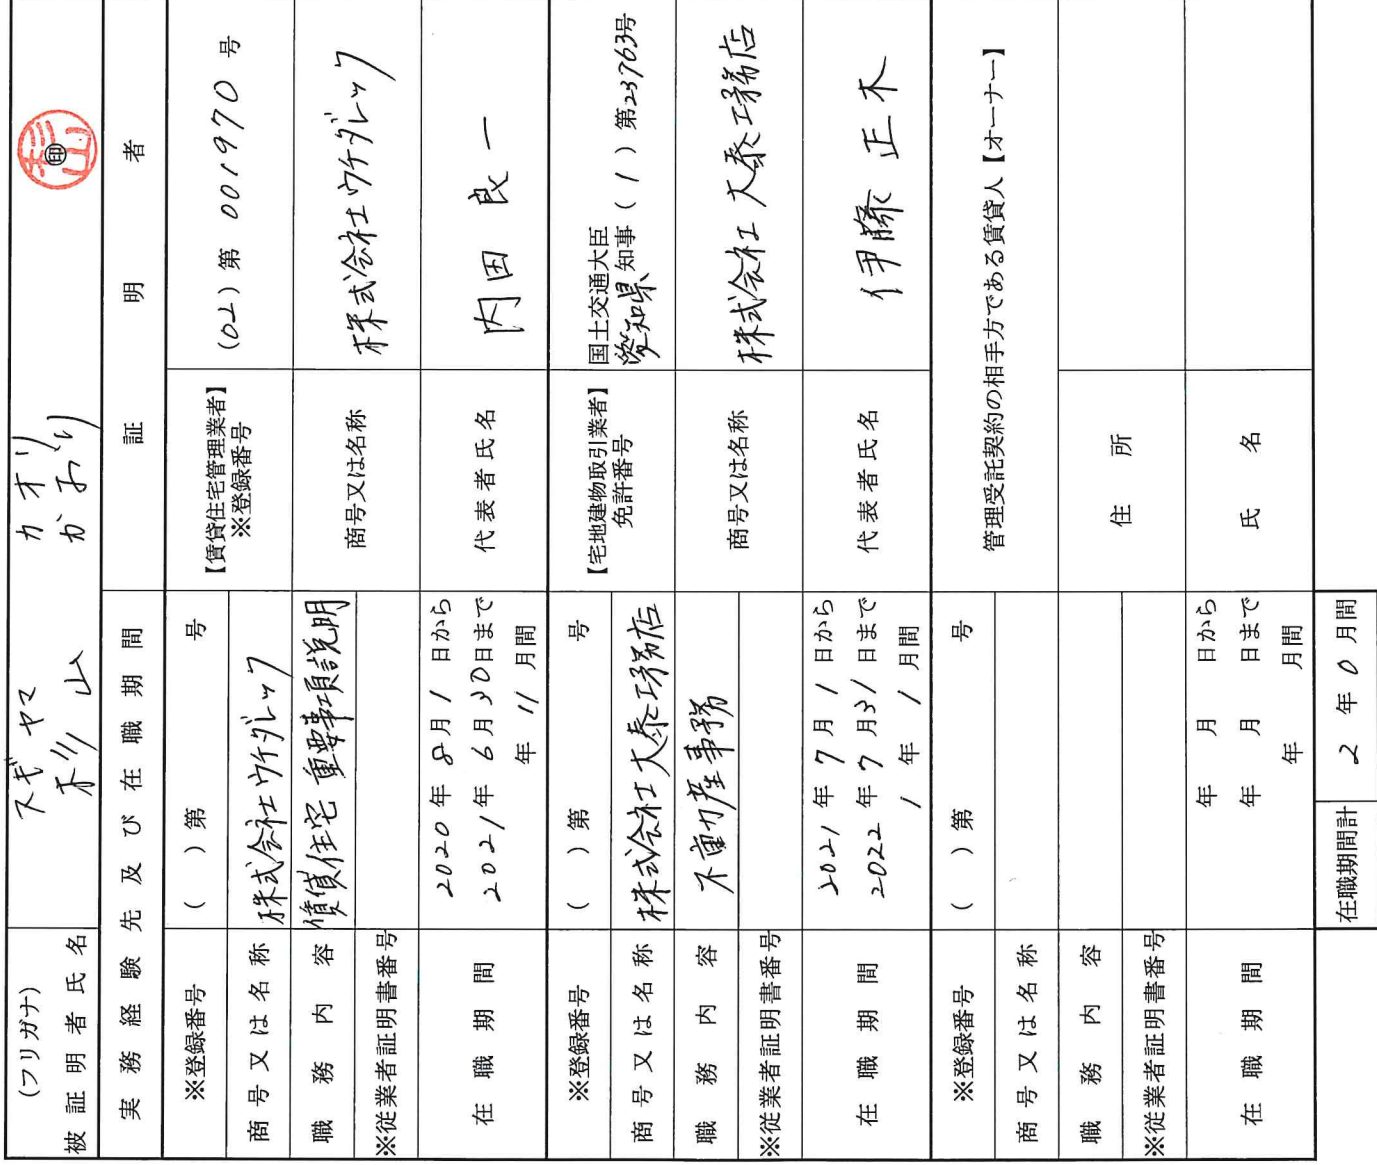 (フリガナ) スギ ヤマ カオリ
被証明者氏名 杉山 かおり ㊞
実務経験先及び在職期間
証明者
※登録番号 ( )第 号
【賃貸住宅管理業者】
※登録番号
(02)第 001970 号
商号又は名称 株式会社ウチダレック
商号又は名称 株式会社ウチダレック
職務内容 賃貸住宅 重要事項説明
※従業者証明書番号
在職期間
2020年8月1日から
2021年6月30日まで
年 11月間
代表者氏名 内田 良一
※登録番号 ( )第 号
【宅地建物取引業者】
免許番号
国土交通大臣
愛知県知事(1)第23763号
商号又は名称 株式会社大泰工務店
商号又は名称 株式会社 大泰工務店
職務内容 不動産事務
※従業者証明書番号
在職期間
2021年7月1日から
2022年7月31日まで
1年1月間
代表者氏名 伊藤 正木
※登録番号 ( )第 号
管理受託契約の相手方である賃貸人【オーナー】
商号又は名称
職務内容
住所
※従業者証明書番号
在職期間
年 月 日から
年 月 日まで
年 月間
氏名
在職期間計 2年0月間